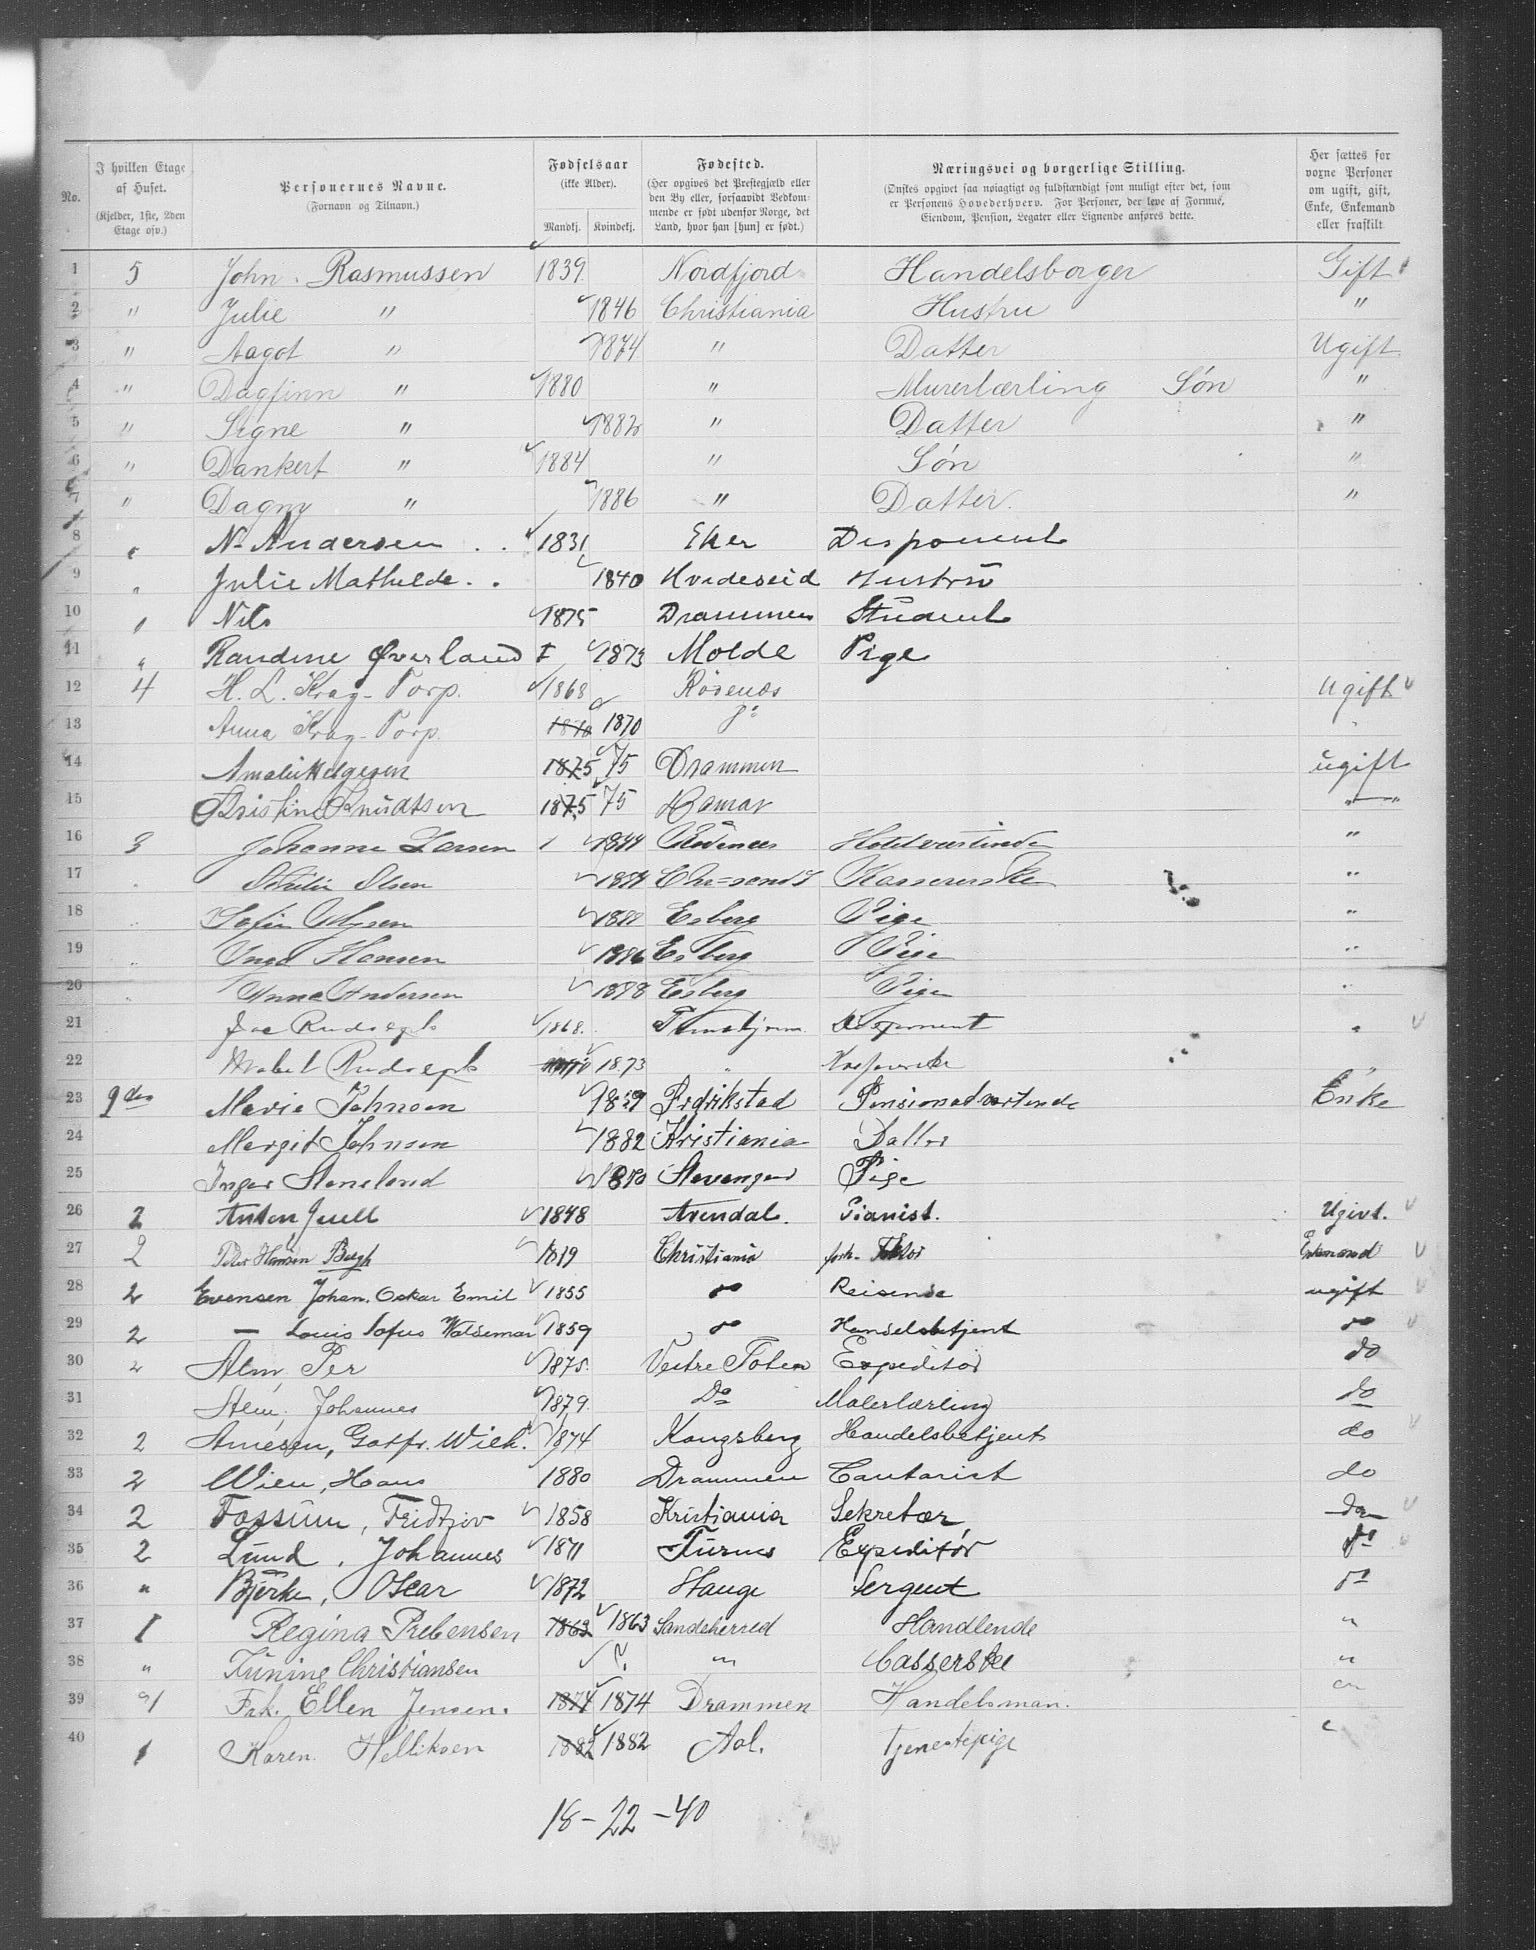 No.
I hvilken Etage af Huset. (Kjelder, 1ste, 2den Etage osv.)
Personernes Navne. (Fornavn og Tilnavn.)
Fødselsaar (ikke Alder). Mandkj. Kvindekj.
Fødested. (Her opgives det Prestegjæld eller den By eller, forsaavidt Vedkommende er født udenfor Norge, det Land, hvor han [hun] er født.)
Næringsvei og borgerlige Stilling. (Ønskes opgivet saa nøiagtigt og fuldstændigt som muligt efter det, som er Personens Hovederhverv. For Personer, der leve af Formue, Eiendom, Pension, Legater eller Lignende anføres dette.
Her sættes for voxne Personer om ugift, gift, Enke, Enkemand eller fraskilt
1 5 John Rasmussen 1839 Nordfjord Handelsborger Gift
2 " Julie " 1846 Christiania Hustru "
3 " Aagot " 1874 " Datter Ugift
4 " Dagfinn " 1880 " Murerlærling Søn "
5 " Signe " 1882 " Datter "
6 " Dankert " 1884 " Søn "
7 " Dagny " 1886 " Datter. "
8 " N. Andersen 1831 Eker Disponent
9 " Julie Mathilde 1840 Hvideseid Hustrü
10 " Nils 1875 Drammen Stüdent
11 " Randine Øverland 1873 Molde Pige
12 4 H. L. Krag-Torp. 1868 Røvenes Ugift
13 Anna Krag-Torp. 1870 1870 do
14 Amalie Helgesen 1875 75 Drammen ugift
15 Kristine Knüdtsen 1875 75 Hamar "
16 3 Johanne Larsen 1844 Rødenes Hotelværtinde "
17 Olsen Chr=sand Kasserske "
18 Sofie Esberg Pige "
19 Inga Hansen 1886 Esberg Pige "
20 Anna Andersen Esberg Pige "
21 Rudolph 1868. Disponent "
22 Rudolph 1873 "
23 Marie Johnsen Fredrikstad Pensionatvertinde Enke
24 Margit Johnsen 1882 Kristiania Datter
25 Inger Steneland Stavanger Pige
26 2 Anton Juell 1848 Arendal. Pianist. Ugivt.
27 2 Peter Hansen Bergh 1819 Christiania Enkemand
28 2 Evensen Johan. Oskar Emil 1855 do Reisende ugift
29 2 — Louis Sofus Valdemar 1859 do Handelsbetjent do
30 2 Alm, Per 1875. Vestre Toten Expeditør do
31 Alm, Johannes 1879. Do Malerlærling do
32 2 Arnesen, Gotfr. Wilh. 1874 Kongsberg Handelsbetjent do
33 2 Wien, Hans 1880 Drammen Contorist do
34 2 Fossüm, Fridtjov 1858 Kristiania Sekretær do
35 2 Lünd, Johannes 1871 Fürnes Expeditør do
36 " Bjerke, Oscar 1872 Stange Sergent do
37 1 Regina Prebensen 1863 1863 Sandeherred Handlende "
38 " Christiansen ? " Casserske "
39 Frk. Ellen Jensen. 1874 1874 Drammen Handelsman. "
40 1 Karen Helliksen 1882 1882 Aal. Tjenestepige "
18 – 22 – 40